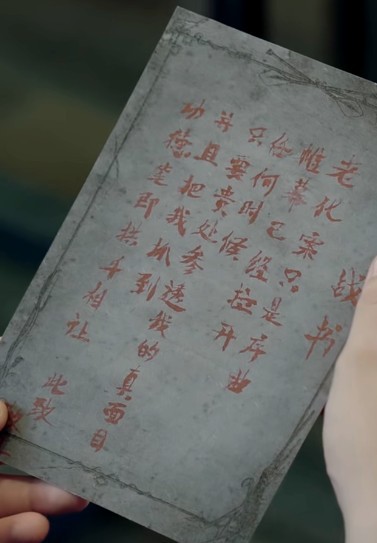 战书
老化案只是序曲
帷幕已经拉开
任何时候
只要贵处参透我的真面目
并且把我抓到
功德笔即拱手相让
此致